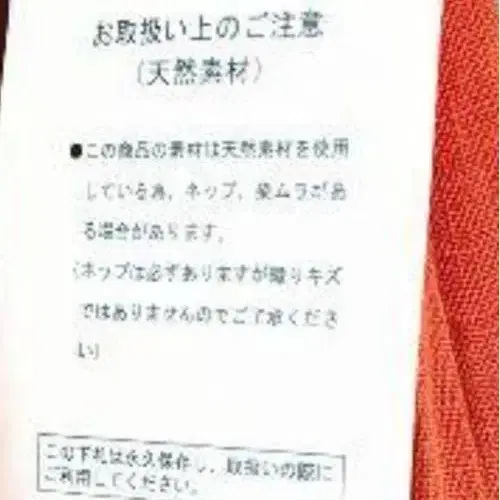 お取扱い上のご注意
(天然素材)
●この商品の素材は天然素材を使用
している為、ネップ、染ムラがあ
る場合があります。
(ネップは必ずありますが織りキズ
ではありませんのでご了承くださ
い)
この下札は永久保存し、取扱いの際に
ご利用してください。